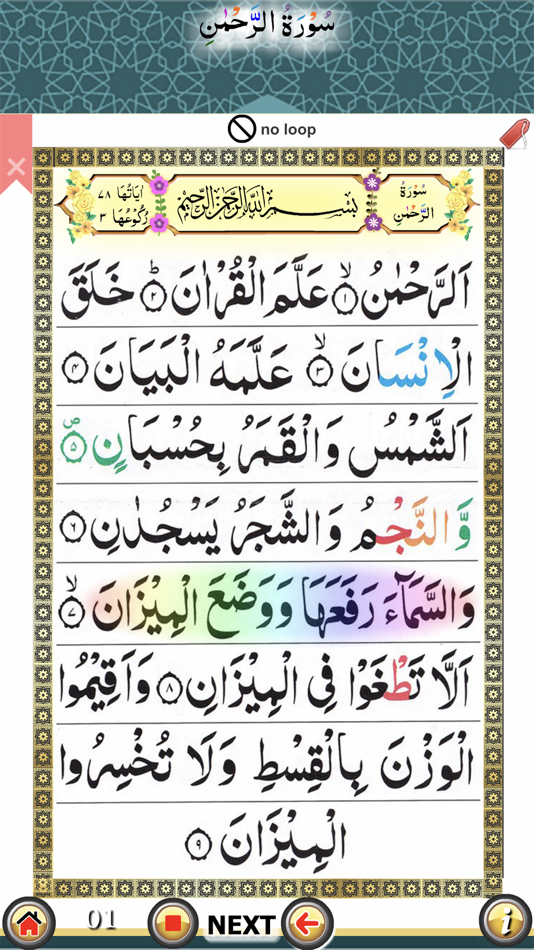 سُوْرَةُ الرَّحْمٰنِ
no loop
سُوْرَةُ
الرَّحْمٰنِ
بِسْمِ اللهِ الرَّحْمٰنِ الرَّحِيْمِ
اٰيَاتُهَا ٧٨
رُكُوْعُهَا ٣
اَلرَّحْمٰنُ ۙ﴿١﴾ عَلَّمَ الْقُرْاٰنَ ؕ﴿٢﴾ خَلَقَ
الْاِنْسَانَ ۙ﴿٣﴾ عَلَّمَهُ الْبَيَانَ ﴿٤﴾
اَلشَّمْسُ وَالْقَمَرُ بِحُسْبَانٍ ۪﴿٥﴾
وَّالنَّجْمُ وَالشَّجَرُ يَسْجُدٰنِ ﴿٦﴾
وَالسَّمَآءَ رَفَعَهَا وَوَضَعَ الْمِيْزَانَ ۙ﴿٧﴾
اَلَّا تَطْغَوْا فِى الْمِيْزَانِ ﴿٨﴾ وَاَقِيْمُوا
الْوَزْنَ بِالْقِسْطِ وَلَا تُخْسِرُوا
الْمِيْزَانَ ﴿٩﴾
01
NEXT
i